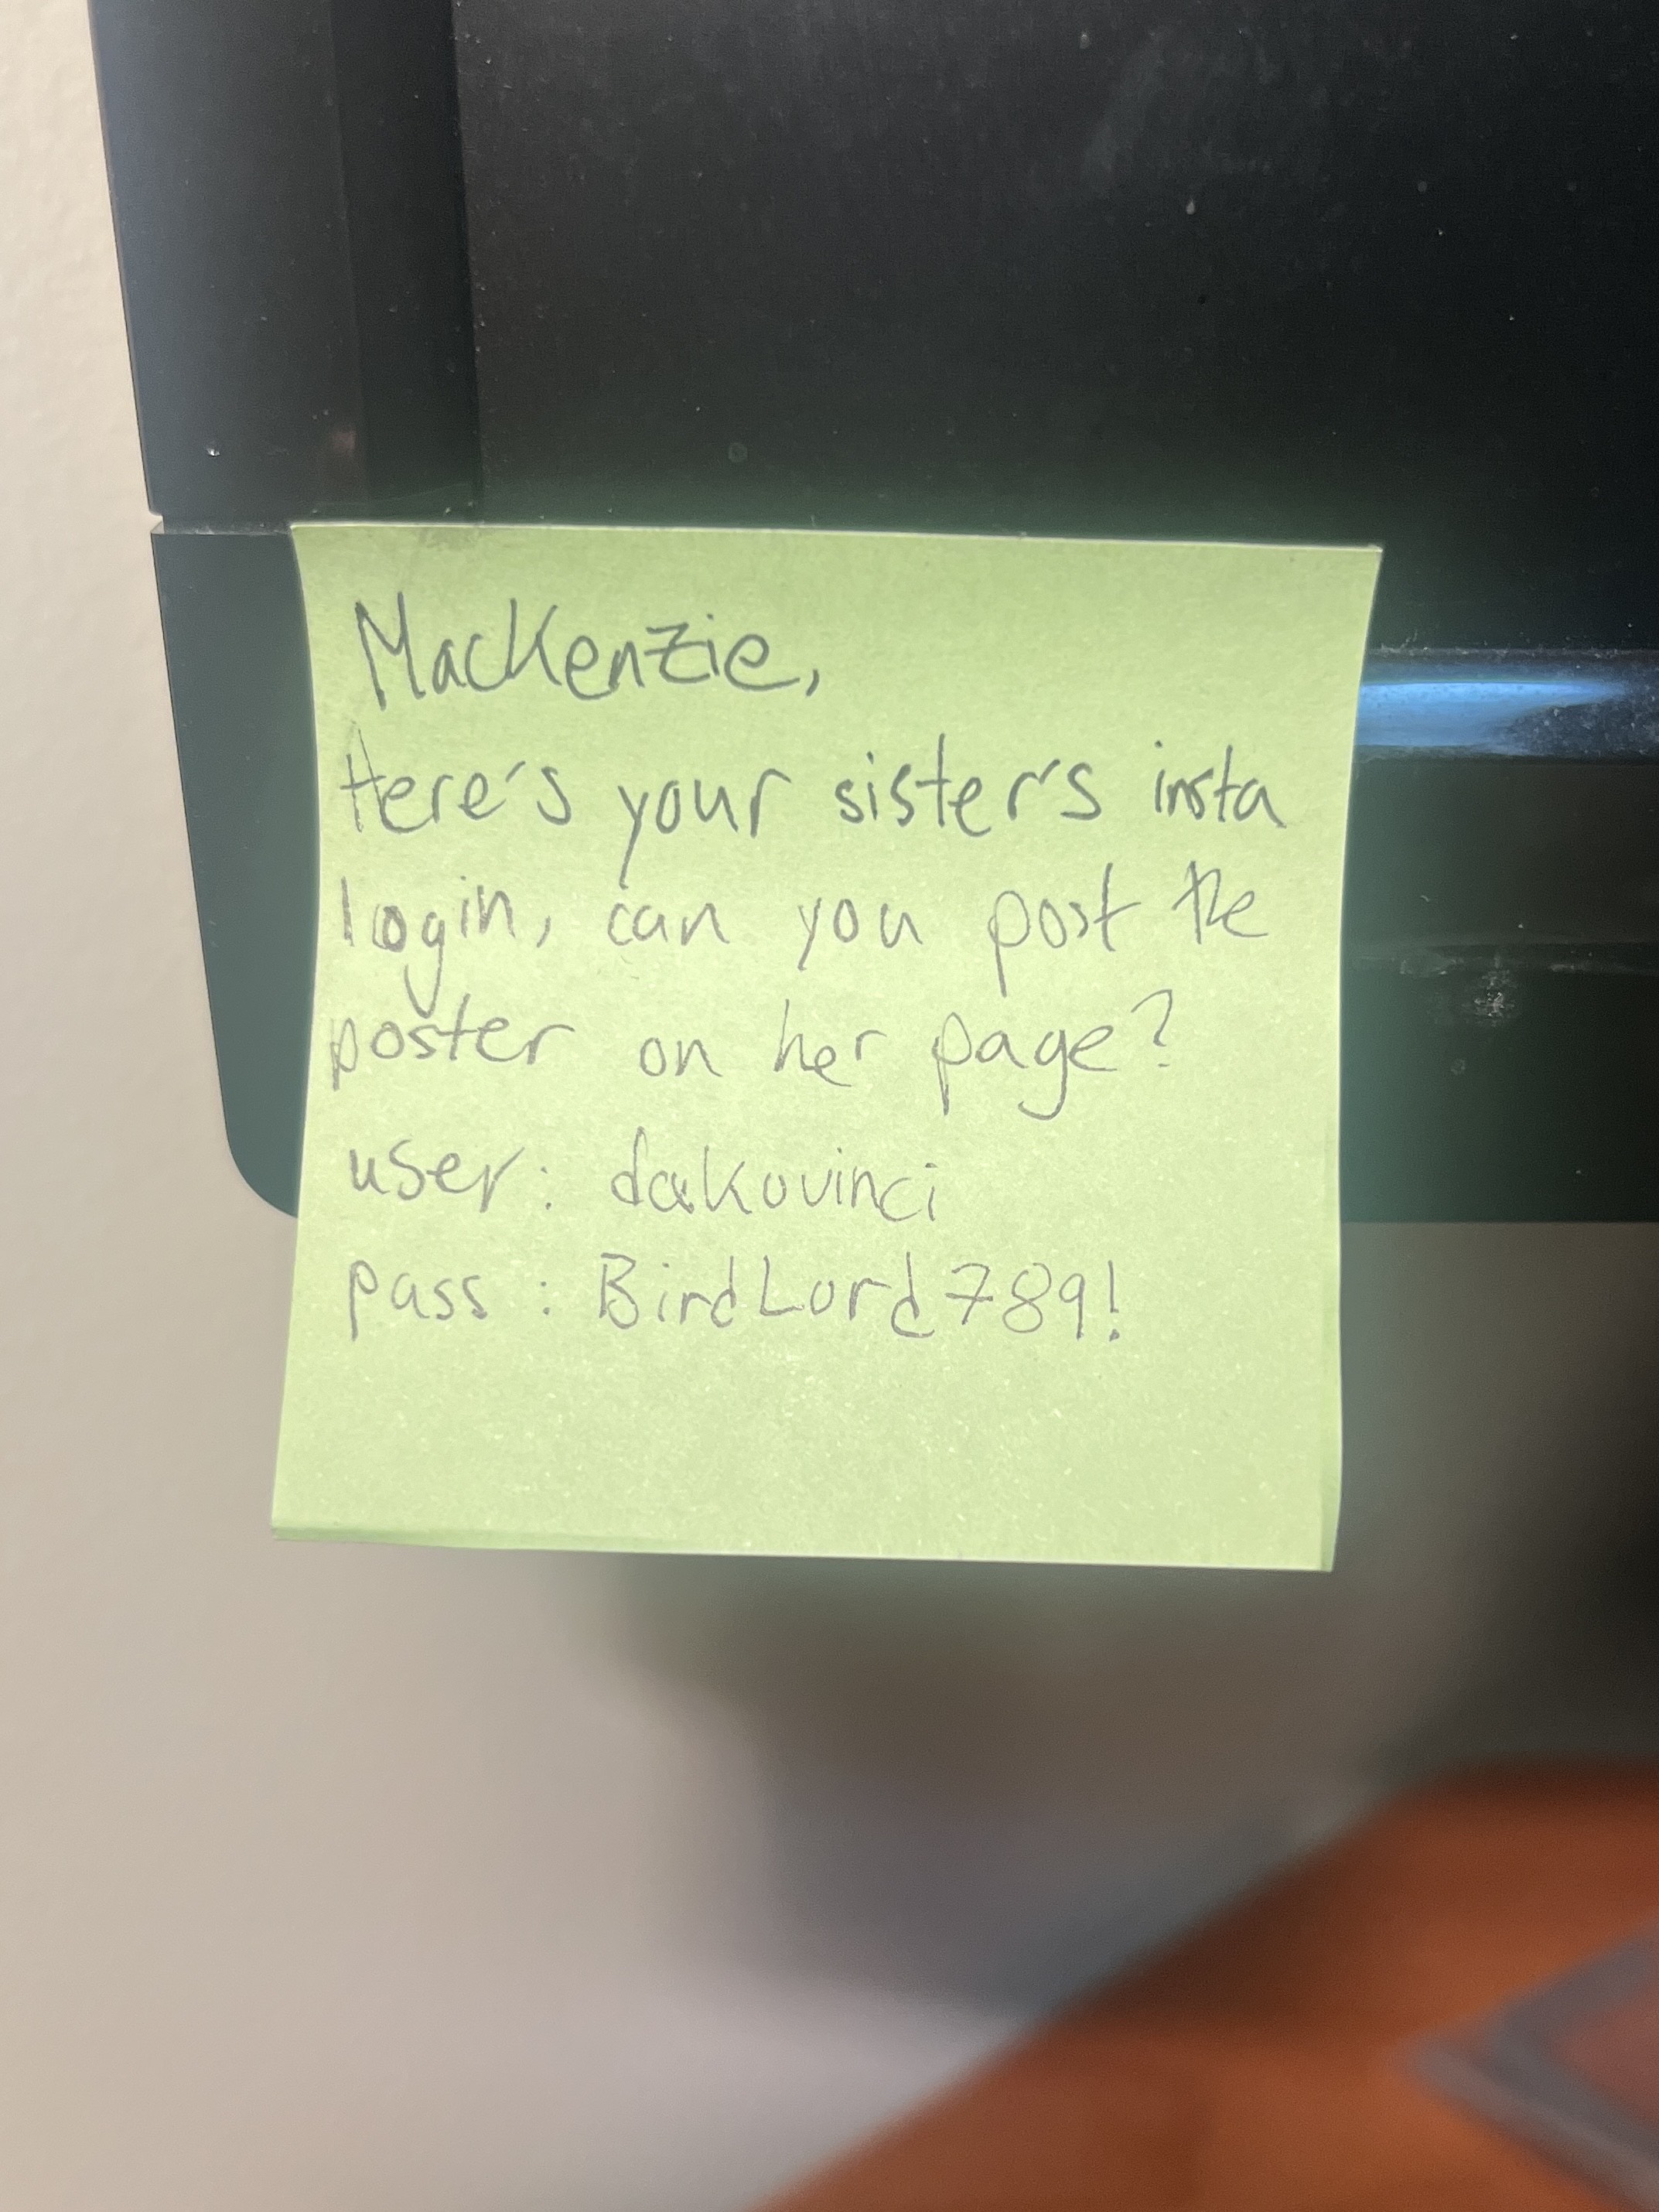 MacKenzie,
Here's your sister's insta
login, can you post the
poster on her page?
user: dakovinci
pass: BirdLord789!